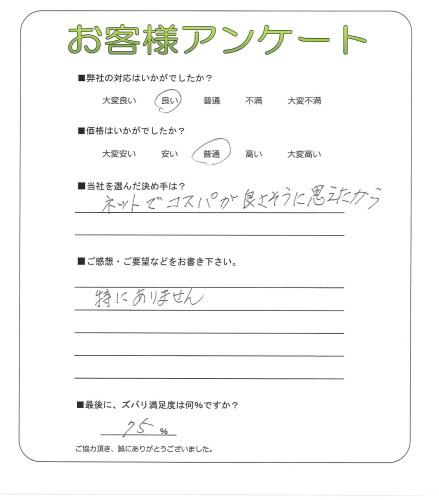 お客様アンケート
■弊社の対応はいかがでしたか？
大変良い 良い 普通 不満 大変不満
■価格はいかがでしたか？
大変安い 安い 普通 高い 大変高い
■当社を選んだ決め手は？
ネットでコスパが良さそうに思えたから
■ご感想・ご要望などをお書き下さい。
特にありません
■最後に、ズバリ満足度は何％ですか？
75 ％
ご協力頂き、誠にありがとうございました。